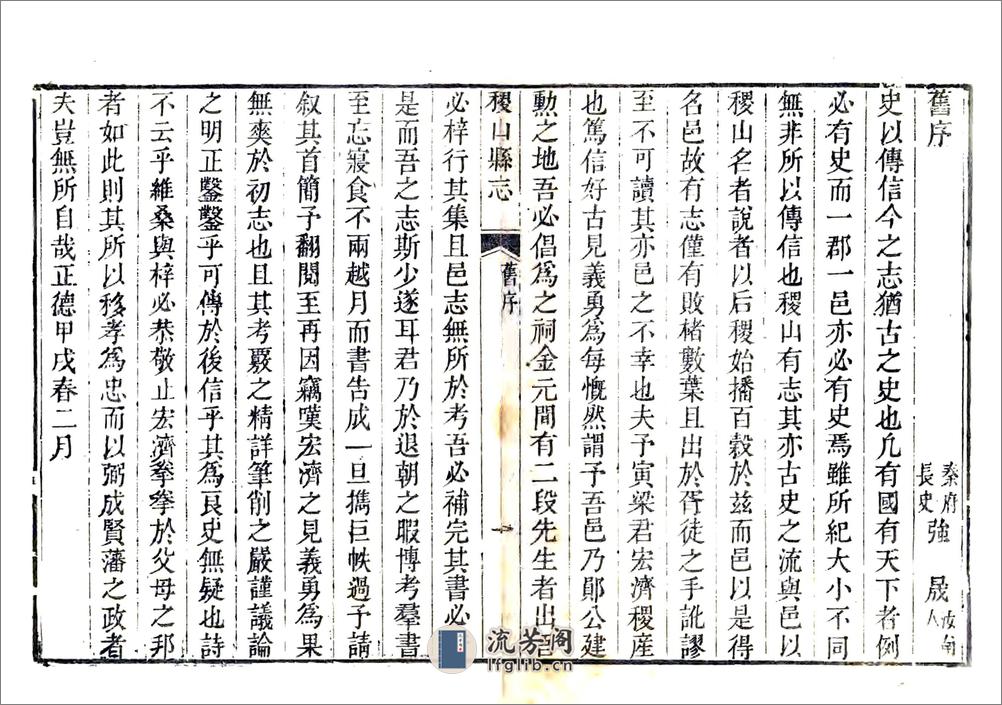 舊序
秦府長史強　晟汝南人
史以傳信今之志猶古之史也凡有國有天下者例
必有史而一郡一邑亦必有史焉雖所紀大小不同
無非所以傳信也稷山有志其亦古史之流與邑以
稷山名者說者以后稷始播百穀於茲而邑以是得
名邑故有志僅有敗楮數葉且出於胥徒之手訛謬
至不可讀其亦邑之不幸也夫予寅梁君宏濟稷產
也篤信好古見義勇為每慨然謂予吾邑乃鄖公建
勲之地吾必倡為之祠金元間有二段先生者出吾
稷山縣志
舊序
一
必梓行其集且邑志無所於考吾必補完其書必
是而吾之志斯少遂耳君乃於退朝之暇博考羣書
至忘寢食不兩越月而書告成一旦攜巨帙過予請
叙其首簡予翻閱至再因竊嘆宏濟之見義勇為果
無爽於初志也且其考覈之精詳筆削之嚴謹議論
之明正鑿鑿乎可傳於後信乎其為良史無疑也詩
不云乎維桑與梓必恭敬止宏濟拳拳於父母之邦
者如此則其所以移孝為忠而以弼成賢藩之政者
夫豈無所自哉正德甲戌春二月
流芳閣
lfglib.cn